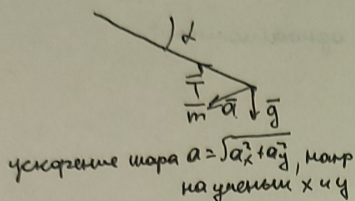 α
T̄
m
ā
ḡ
ускорение шара a = √(aₓ² + a_y²), напр
на x и y